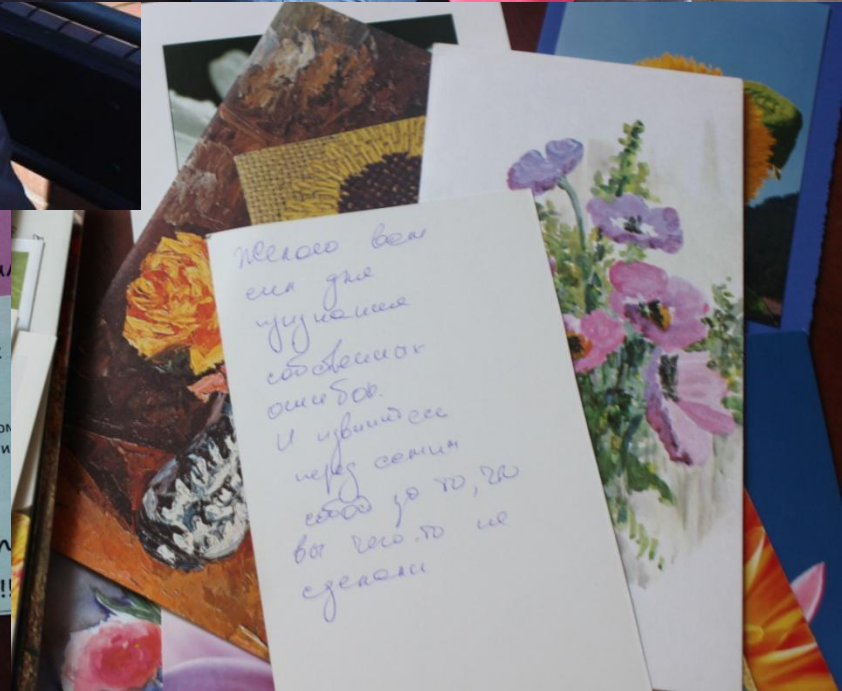 Желаю вам
сил для
признания
собственных
ошибок.
И извинитесь
перед самим
собой за то, что
вы чего-то не
сделали